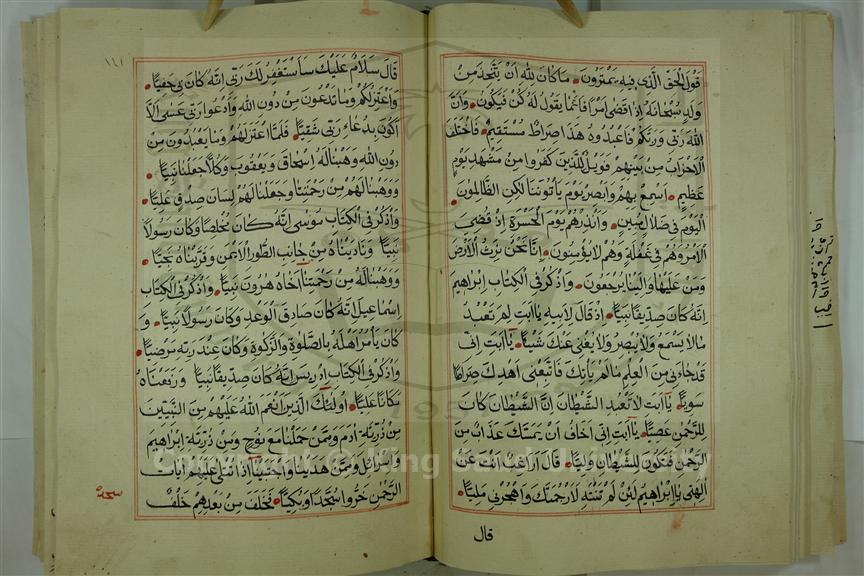 قول الحق الذي فيه يمترون ما كان لله ان يتخذ من
ولد سبحانه اذا قضى امرا فانما يقول له كن فيكون وان
الله ربي وربكم فاعبدوه هذا صراط مستقيم فاختلف
الاحزاب من بينهم فويل للذين كفروا من مشهد يوم
عظيم اسمع بهم وابصر يوم ياتوننا لكن الظالمون
اليوم في ضلال مبين وانذرهم يوم الحسرة اذ قضى
الامر وهم في غفلة وهم لا يؤمنون انا نحن نرث الارض
ومن عليها والينا يرجعون واذكر في الكتاب ابراهيم
انه كان صديقا نبيا اذ قال لابيه يا ابت لم تعبد
مالا يسمع ولا يبصر ولا يغنى عنك شيئا يا ابت اني
قد جاءني من العلم مالم يأتك فاتبعنى اهدك صراطا
سويا يا ابت لا تعبد الشيطان ان الشيطان كان
للرحمن عصيا يا ابت اني اخاف ان يمسك عذاب من
الرحمن فتكون للشيطان وليا قال اراغب انت عن
الهتي يا ابراهيم لئن لم تنته لارجمنك واهجرني مليا
قال
١٦١
قال سلام عليك سأستغفر لك ربي انه كان بي حفيا
واعتزلكم وما تدعون من دون الله وادعوا ربي عسى الا
اكون بدعاء ربي شقيا فلما اعتزلهم وما يعبدون من
دون الله وهبنا له اسحاق ويعقوب وكلا جعلنا نبيا
ووهبنا لهم من رحمتنا وجعلنا لهم لسان صدق عليا
واذكر في الكتاب موسى انه كان مخلصا وكان رسولا
نبيا وناديناه من جانب الطور الايمن وقربناه نجيا
ووهبنا له من رحمتنا اخاه هرون نبيا واذكر في الكتاب
اسماعيل انه كان صادق الوعد وكان رسولا نبيا و
كان يأمر اهله بالصلوة والزكوة وكان عند ربه مرضيا
واذكر في الكتاب ادريس انه كان صديقا نبيا ورفعناه
مكانا عليا اولئك الذين انعم الله عليهم من النبيين
من ذرية ادم وممن حملنا مع نوح ومن ذرية ابراهيم
واسرائل وممن هدينا واجتبينا اذا تتلى عليهم ايات
الرحمن خروا سجدا وبكيا فخلف من بعدهم خلف
سجدة
Copyright © King Saud University
1957